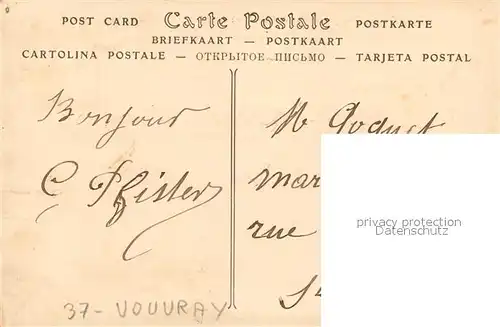 POST CARD Carte Postale POSTKARTE
BRIEFKAART — POSTKAART
CARTOLINA POSTALE — ОТКРЫТОЕ ПИСЬМО — TARJETA POSTAL
Bonjour
C. Pfister
M Goquet
mar
rue
St
privacy protection
Datenschutz
37 - VOUVRAY